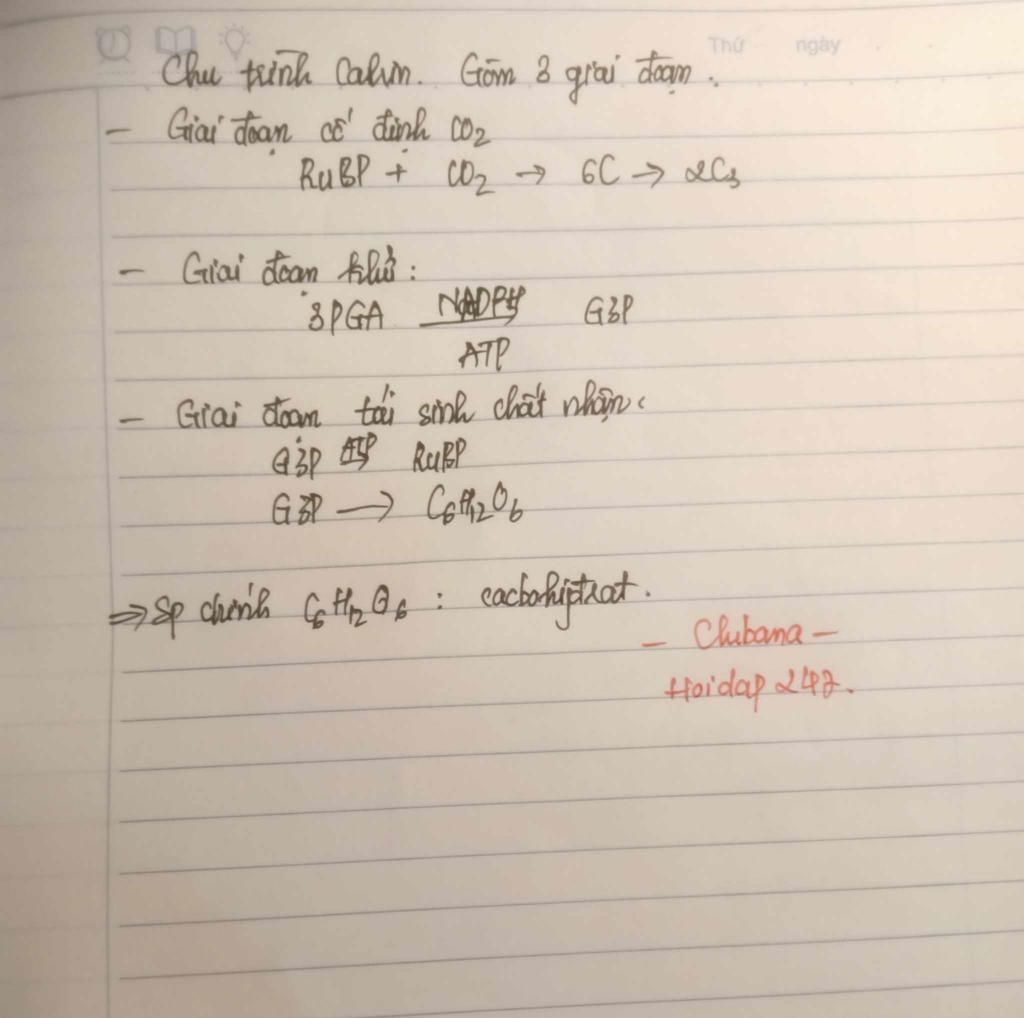 Thứ ngày
Chu trình Calvin. Gồm 3 giai đoạn.
- Giai đoạn cố định CO2
RuBP + CO2 → 6C → 2C3
- Giai đoạn khử:
3PGA NADPH→ G3P
ATP
- Giai đoạn tái sinh chất nhận:
G3P ATP→ RuBP
G3P → C6H12O6
⇒ Sp chính C6H12O6 : cacbohiptrat.
- Chibana -
Hoidap 247.